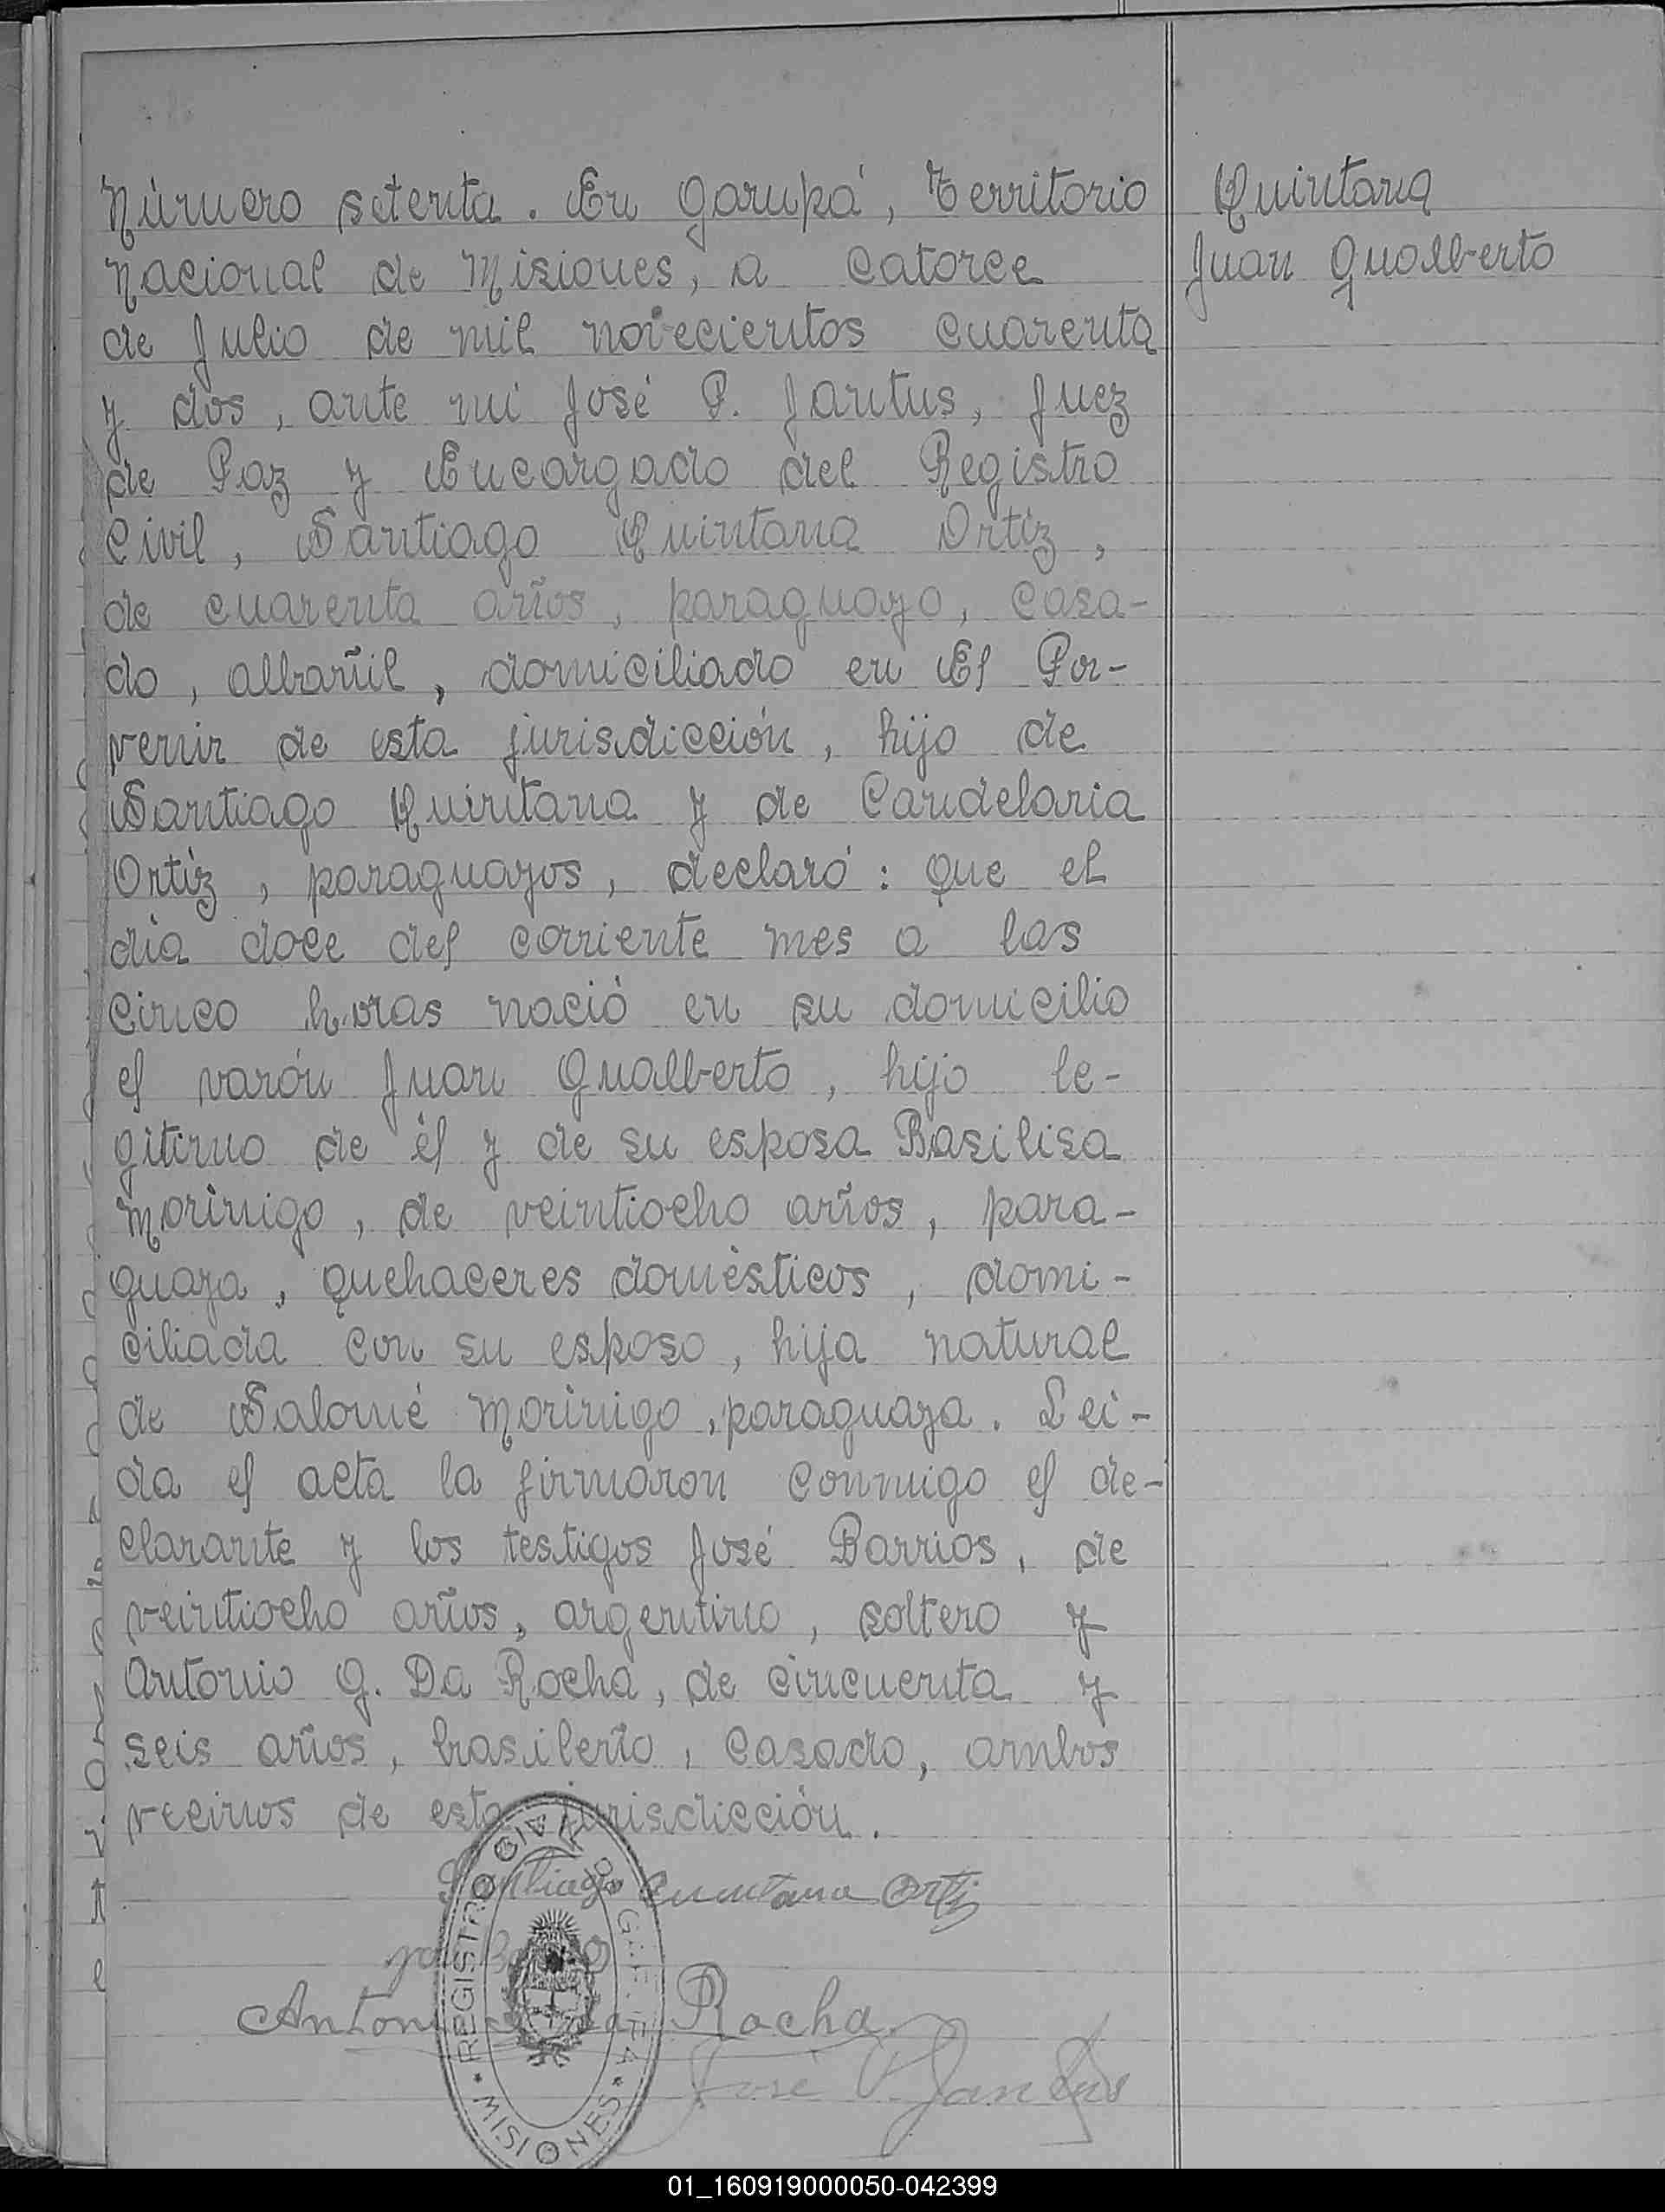 Número setenta. En Garupá, Territorio
Nacional de Misiones, a catorce
de Julio de mil novecientos cuarenta
y dos, ante mi José P. Jantus, Juez
de Paz y Encargado del Registro
Civil, Santiago Quintana Ortíz,
de cuarenta años, paraguayo, casa-
do, albañil, domiciliado en El Por-
venir de esta jurisdicción, hijo de
Santiago Quintana y de Candelaria
Ortíz, paraguayos, declaró: Que el
día doce del corriente mes a las
cinco horas nació en su domicilio
el varón Juan Gualberto, hijo le-
gitimo de él y de su esposa Basilisa
Morínigo, de veintiocho años, para-
guaya, quehaceres domésticos, domi-
ciliada con su esposo, hija natural
de Salomé Morínigo, paraguaya. Lei-
da el acta la firmaron conmigo el de-
clarante y los testigos José Barrios, de
veintiocho años, argentino, soltero y
Antonio G. Da Rocha, de cincuenta y
seis años, brasileño, casado, ambos
vecinos de esta jurisdicción.
Quintana
Juan Gualberto
Santiago Quintana Orti
Antonio Rocha
José P. Jantus
REGISTRO CIVIL
MISIONES
01_160919000050-042399